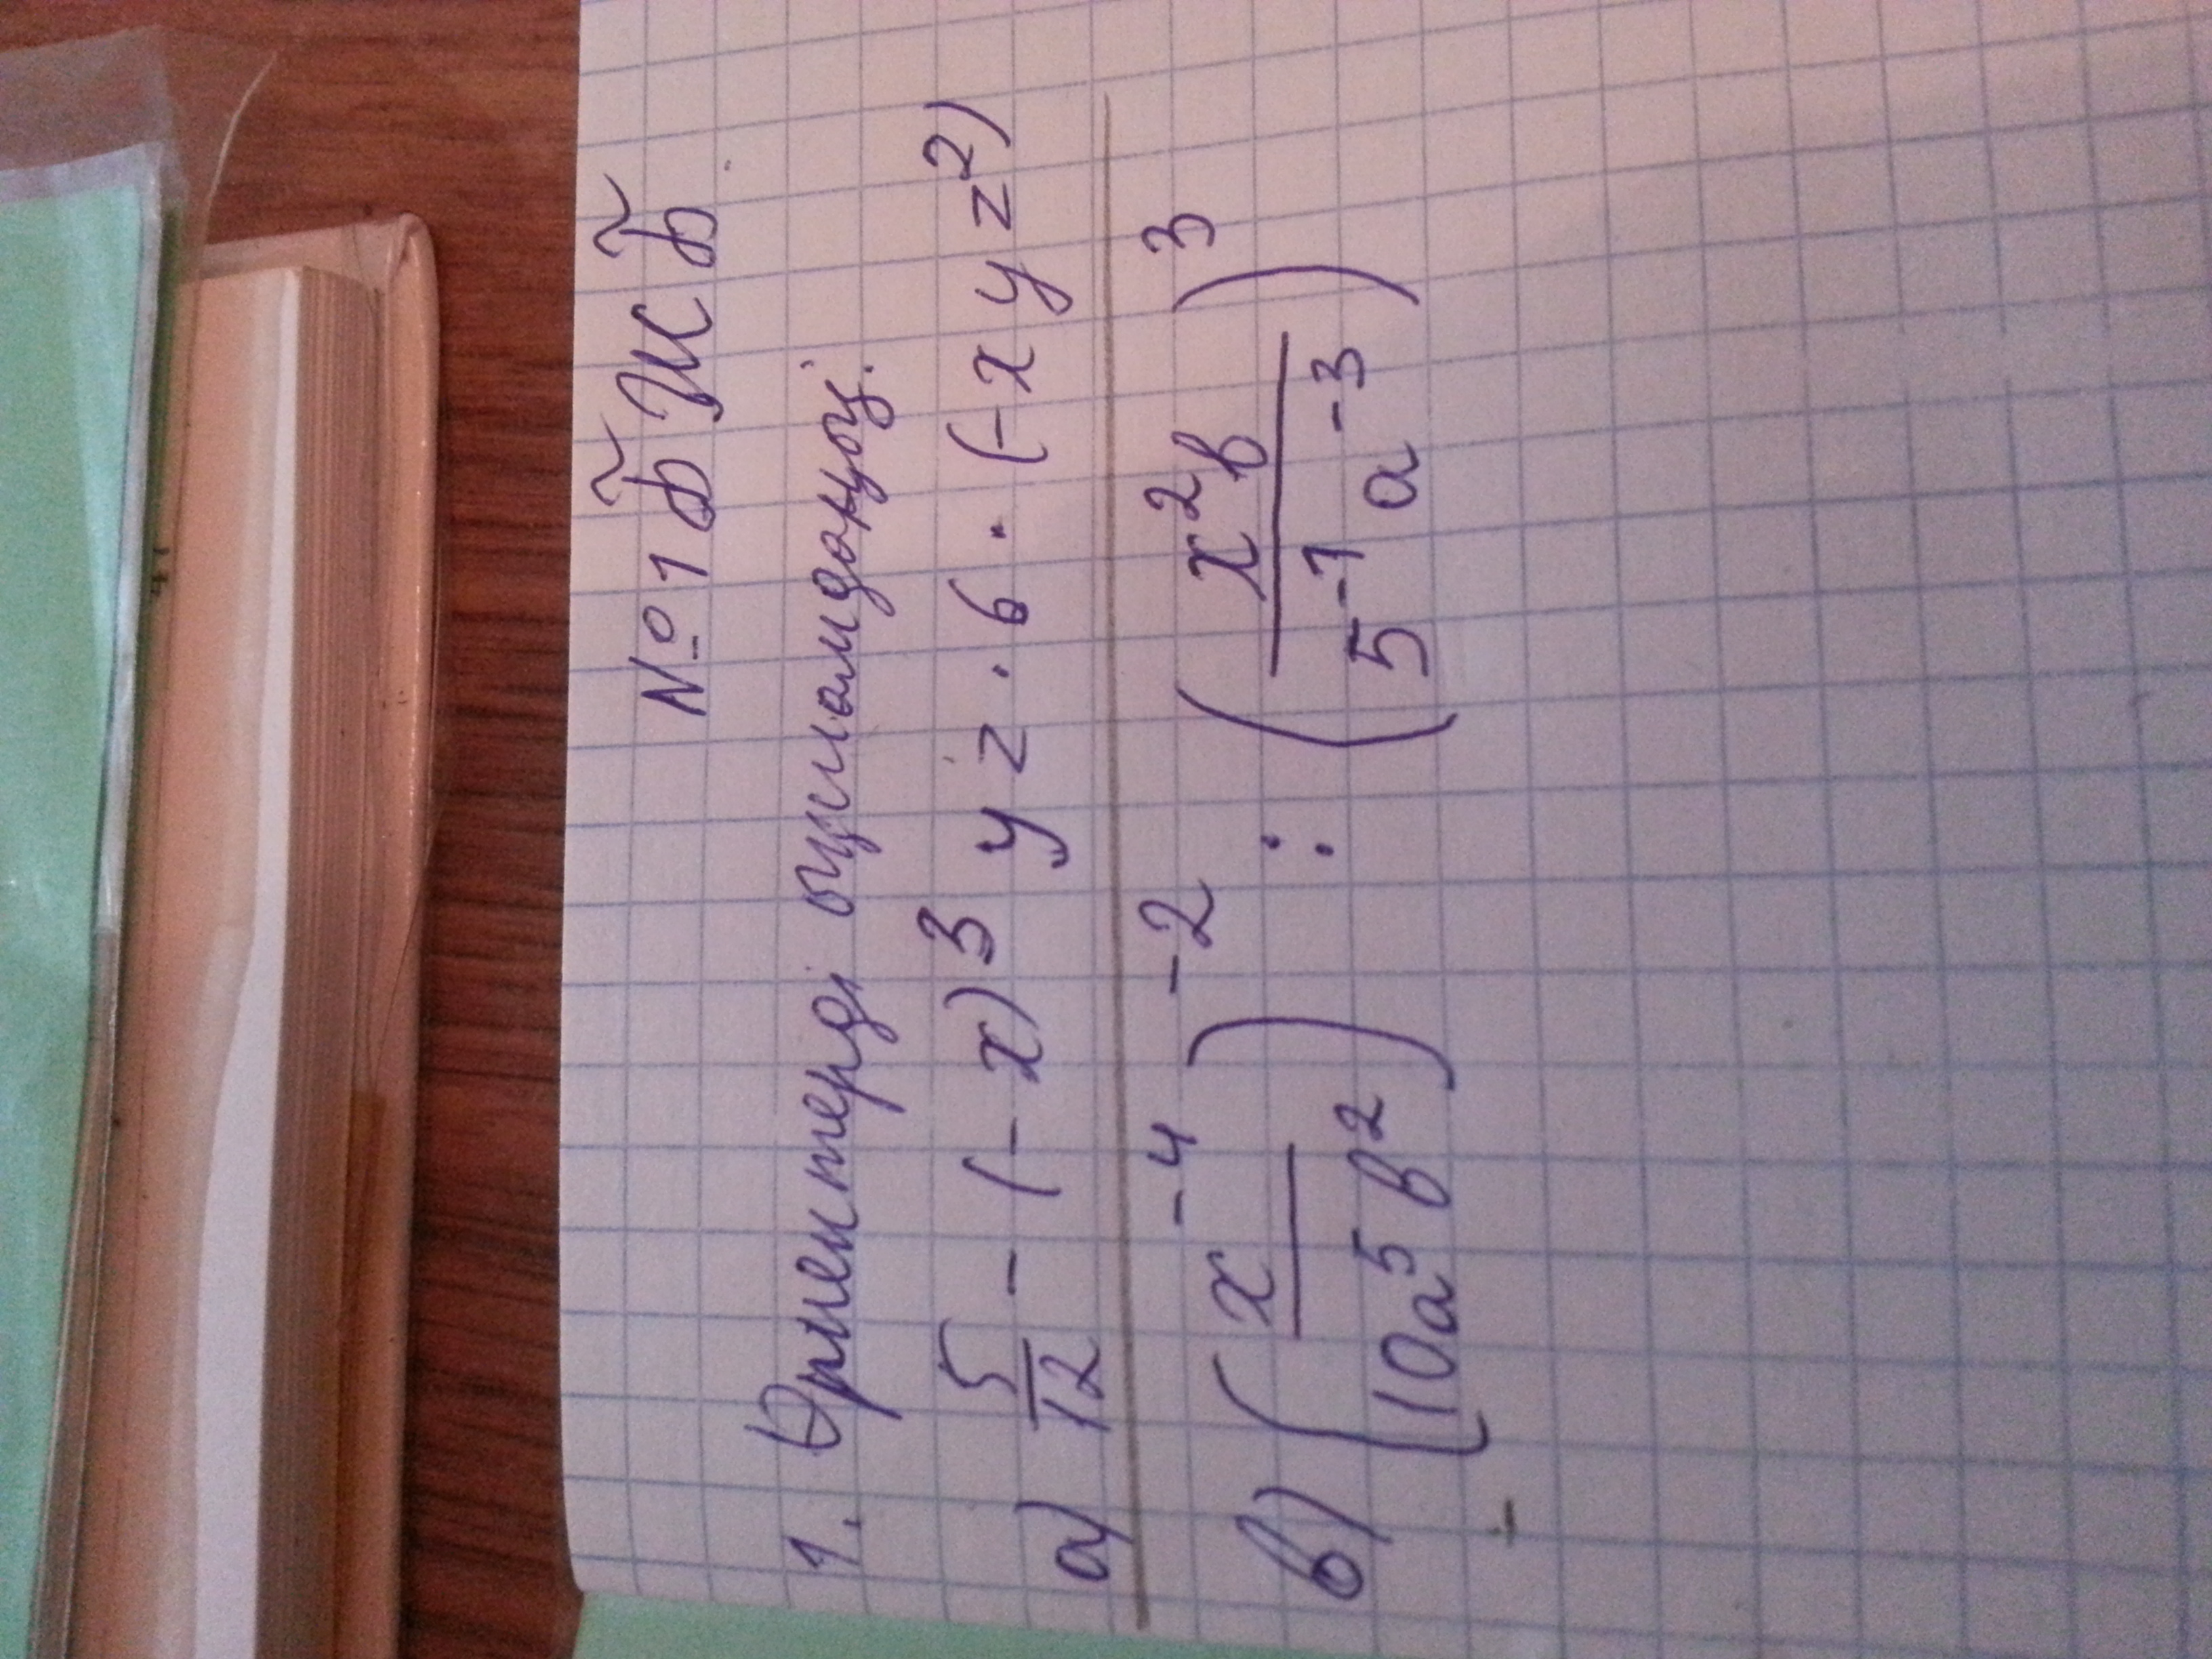 №1 БЖБ
1. Өрнектерді ықшамдаңыз.
а) 5/12 - (-x)³ yz · 6 · (-xyz²)
в) (x⁻⁴/10a⁵в²)⁻² : (x²в/5⁻¹a⁻³)³